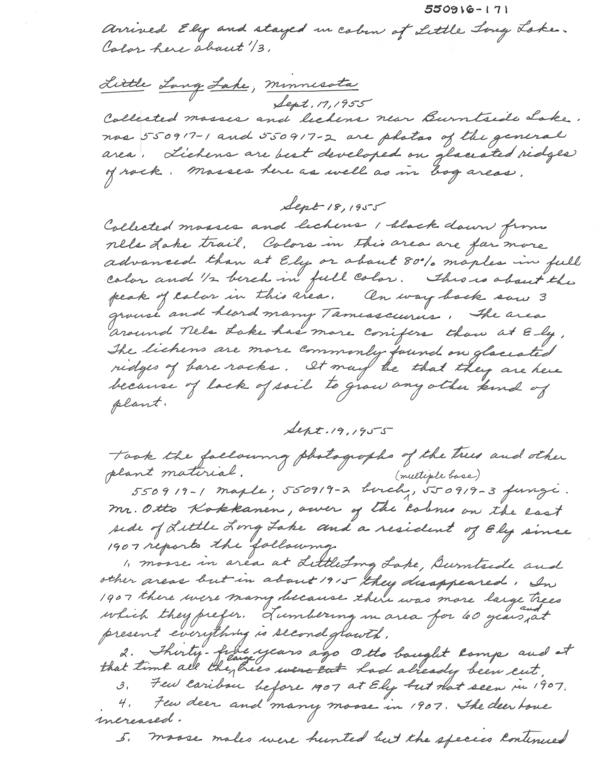 550916-171
Arrived Ely and stayed in cabin at Little Long Lake.
Color here about 1/3.
Little Long Lake, Minnesota
Sept. 17, 1955
Collected mosses and lichens near Burntside Lake.
nos 550917-1 and 550917-2 are photos of the general
area. Lichens are best developed on glaciated ridges
of rock. Mosses here as well as in bog areas.
Sept 18, 1955
Collected mosses and lichens 1 block down from
Nels Lake trail. Colors in this area are far more
advanced than at Ely or about 80% maples in full
color and 1/2 birch in full color. This is about the
peak of color in this area. On way back saw 3
grouse and heard many Tamiasciurus. The area
around Nels Lake has more conifers than at Ely.
The lichens are more commonly found on glaciated
ridges of bare rocks. It may be that they are here
because of lack of soil to grow any other kind of
plant.
Sept. 19, 1955
Took the following photographs of the trees and other
plant material.
(multiple base)
550919-1 maple; 550919-2 birch, 550919-3 fungi.
Mr. Otto Kokkanen, owner of the cabins on the east
side of Little Long Lake and a resident of Ely since
1907 reports the following
1. moose in area at Little Long Lake, Burntside and
other areas but in about 1915 they disappeared. In
1907 there were many because there was more large trees
which they prefer. Lumbering in area for 60 years and at
present everything is second growth.
2. Thirty-five years ago Otto bought camp and at
that time all the large trees were cut had already been cut.
3. Few caribou before 1907 at Ely but not seen in 1907.
4. Few deer and many moose in 1907. The deer have
increased.
5. Moose males were hunted but the species continued